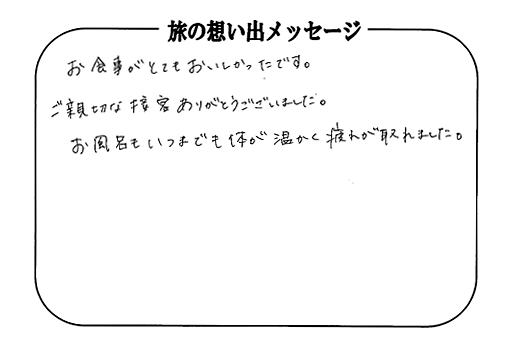 旅の想い出メッセージ
お食事がとてもおいしかったです。
ご親切な接客ありがとうございました。
お風呂もいつまでも体が温かく疲れが取れました。